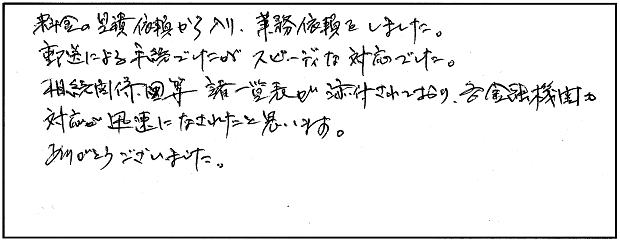 料金の見積依頼から入り、業務依頼をしました。
郵送による手続でしたがスピーディな対応でした。
相続関係図等諸一覧表が添付されており、各金融機関も
対応が迅速になされたと思います。
ありがとうございました。